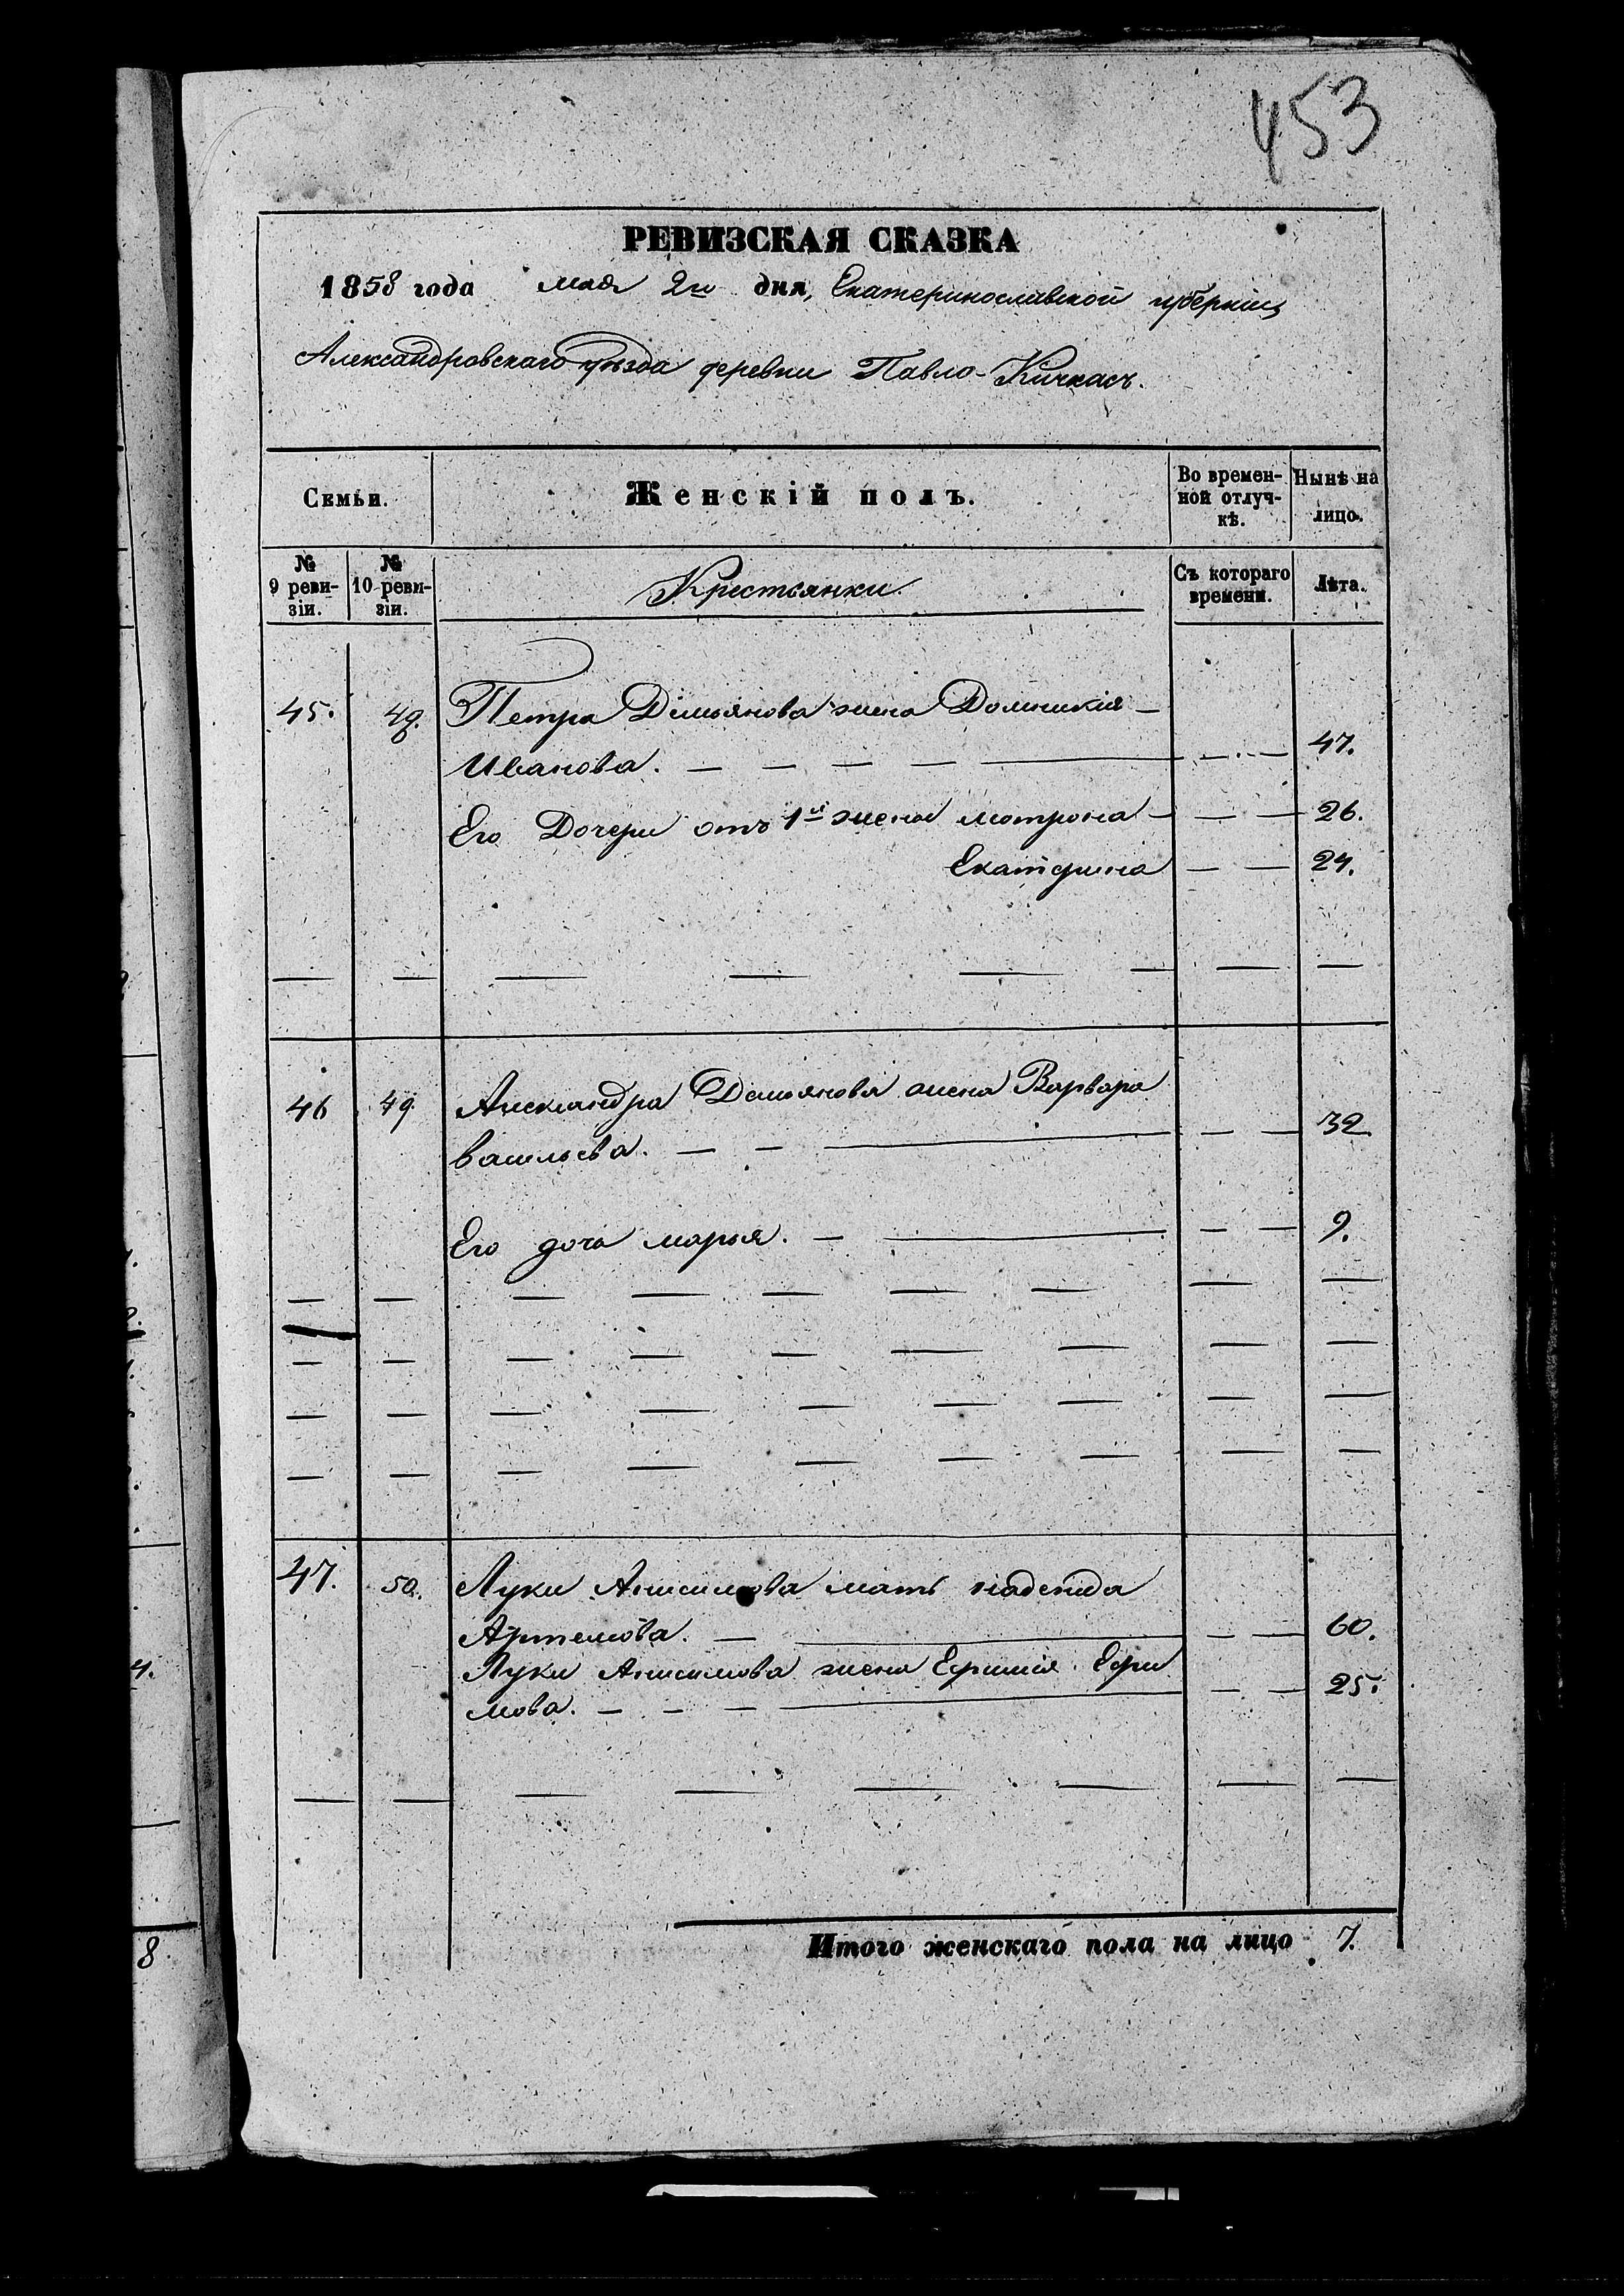 453
РЕВИЗСКАЯ СКАЗКА
1858 года мая 2го дня, Екатеринославской губерніи
Александровскаго уѣзда деревни Павло-Кичкасъ.
Семьи. Женскій полъ. Во времен-ной отлуч-кѣ. Нынѣ на лицо.
№ 9 реви-зіи. № 10 реви-зіи. Крестьянки. Съ котораго времени. Лѣта.
45. Петра Демьянова жена Домникія —
Иванова. — — — — — — — 47.
Его Дочери отъ 1й жены матрона — — — 26.
Екатерина — — 24.
— — — — — — — —
46 49. Александра Демьянова жена Варвара
васильева. — — — — — 32
Его дочь марья. — — — — 9.
— — — — — — — — —
— — — — — — — — —
— — — — — — — — —
— — — — — — — — —
47. 50. Луки Анисимова мать надежда
Артемова. — — — — 60.
Луки Анисимова жена Ефимія Ефи
мова. — — — — — — 25.
— — — — — — — —
Итого женскаго пола на лицо 7.
4.
8